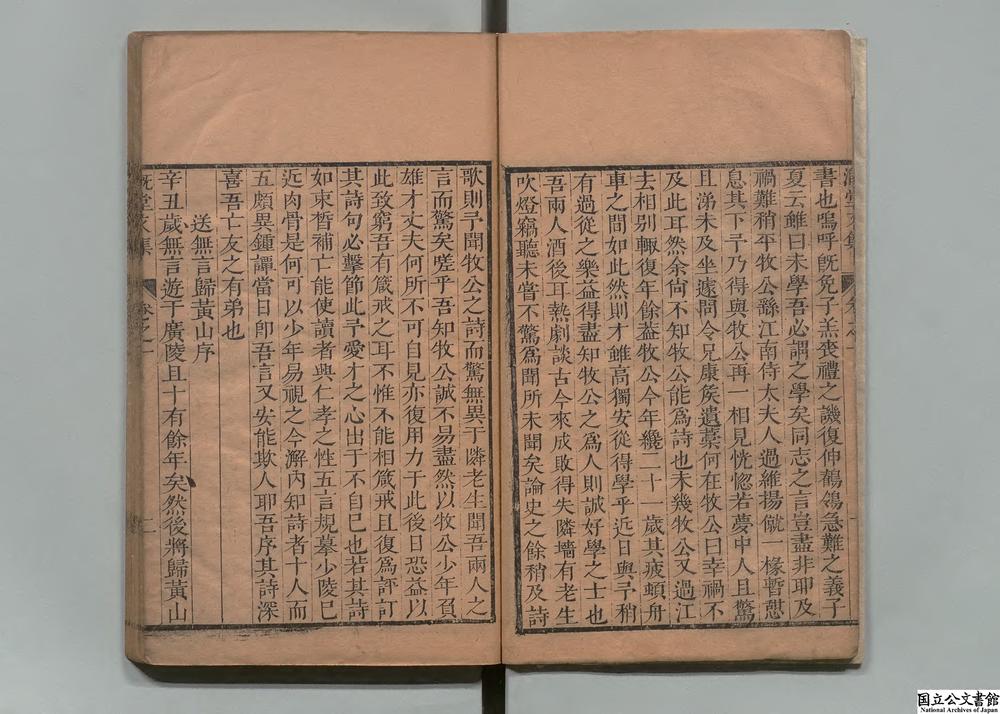 書也嗚呼旣免子羔喪禮之譏復伸鶺鴒急難之義子
夏云雖曰未學吾必謂之學矣同志之言豈盡非耶及
禍難稍平牧公繇江南侍太夫人過維揚僦一椽暫憇
息其下予乃得與牧公再一相見恍惚若夢中人且驚
且涕未及坐遽問令兄康矦遺藁何在牧公曰幸禍不
及此耳然余尙不知牧公能爲詩也未幾牧公又過江
去相别輙復年餘葢牧公今年纔二十一歲其疲頓舟
車之間如此然則才雖高獨安從得學乎近日與予稍
有過從之樂益得盡知牧公之爲人則誠好學之士也
吾兩人酒後耳熱劇談古今來成敗得失隣墻有老生
吹燈竊聽未嘗不驚爲聞所未聞矣論史之餘稍及詩
歌則予聞牧公之詩而驚無異于隣老生聞吾兩人之
言而驚矣嗟乎吾知牧公誠不易盡然以牧公少年負
雄才丈夫何所不可自見亦復用力于此後日恐益以
此致窮吾有箴戒之耳不惟不能相箴戒且復爲評訂
其詩句必擊節此予愛才之心出于不自已也若其詩
如束晳補亡能使讀者興仁孝之性五言規摹少陵已
近肉骨是何可以少年易視之今澥内知詩者十人而
五頗異鍾譚當日卽吾言又安能欺人耶吾序其詩深
喜吾亡友之有弟也
送無言歸黃山序
辛丑歲無言遊于廣陵且十有餘年矣然後將歸黃山
漑堂文集
卷之一
二
国立公文書館
National Archives of Japan